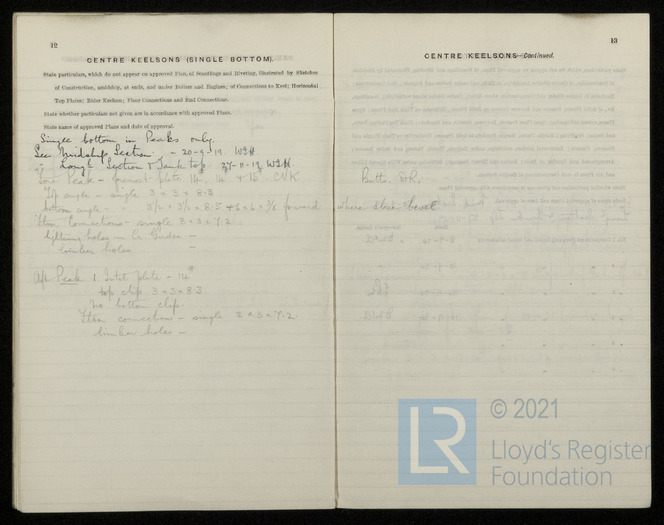 12
CENTRE KEELSONS (SINGLE BOTTOM).
State particulars, which do not appear on approved Plan, of Scantlings and Riveting, illustrated by Sketches
of Construction, amidships, at ends, and under Boilers and Engines; of Connections to Keel; Horizontal
Top Plates; Rider Keelson; Floor Connections and End Connections.
State whether particulars not given are in accordance with approved Plans.
State names of approved Plans and date of approval.
Single bottom in Peaks only.
See Midship Section - 20-9-19. WSH
" Longl Section & Tank top. 27-11-19 WSH
Fore Peak - plate CVK
Top angle - single 3 x 3 x 8.3
bottom angle - 3½ x 3½ x forward
connections - single 3 x 3 x 7.2
lightning holes in Cr Girder -
limber holes -
Aft Peak Intcl plate - 14#
top clip 3 x 3 x 8.3
No bottom clip.
connection - single 3 x 3 x 7.2
limber holes -
13
CENTRE KEELSONS—Continued.
Butts. DR.
where close bevel
© 2021
LR
Lloyd's Register
Foundation